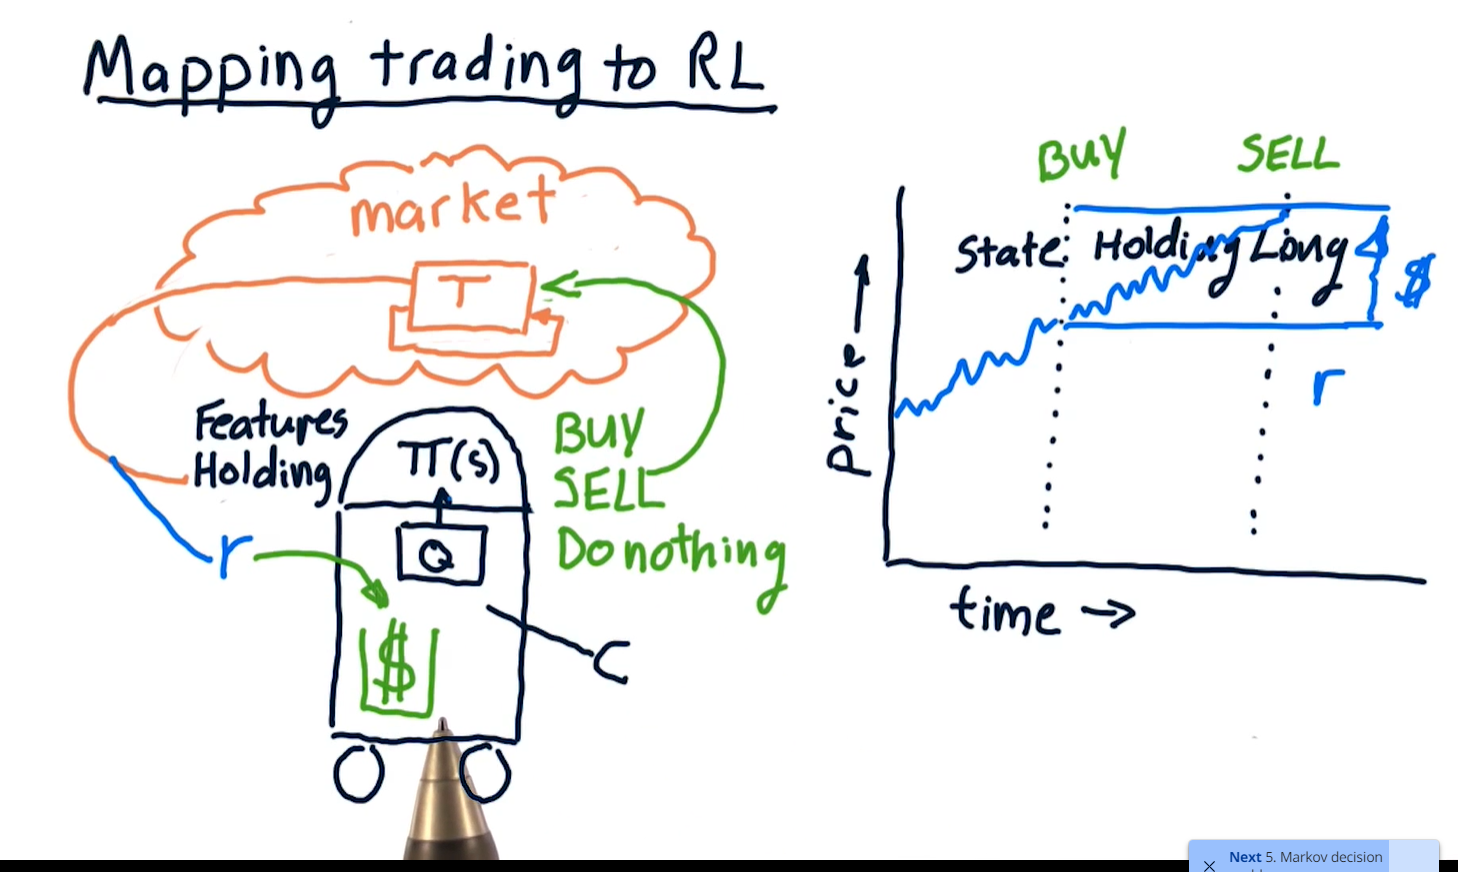 Mapping trading to RL
market
T
Features
Holding
r
π(s)
Q
$
C
BUY
SELL
Do nothing
BUY
SELL
State: Holding Long
$
r
price →
time →
Next 5. Markov decision